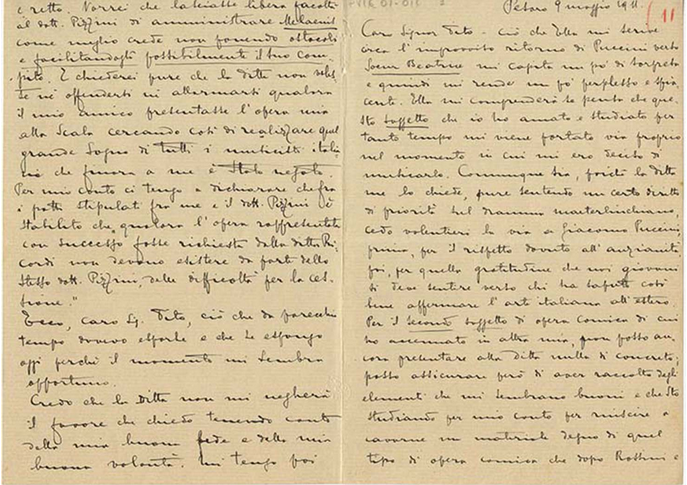 Pesaro 9 maggio 1911.
11
Caro Signor Tito - Ciò che Ella mi scrive
circa l'improvviso ritorno di Puccini verso
Soeur Beatrice mi capita un po' di sorpresa
e quindi mi rende un po' perplesso e spia-
cente. Ella mi comprenderà se pensa che que-
sto soggetto che io ho amato e studiato per
tanto tempo mi viene portato via proprio
nel momento in cui mi ero deciso di
musicarlo. Comunque sia, poichè la ditta
me lo chiede, pure sentendo un certo diritto
di priorità sul dramma maeterlinckiano,
cedo volentieri la via a Giacomo Puccini,
prima, per il rispetto dovuto all'anzianità
poi, per quella gratitudine che noi giovani
si deve sentire verso chi ha saputo così
bene affermare l'arte italiana all'estero.
Per il secondo soggetto di opera comica di cui
ho accennato in altra mia, non posso an-
cora presentare alla ditta nulla di concreto;
posso assicurare però di aver raccolto degli
elementi che mi sembrano buoni e che sto
studiando per mio conto per riuscire a
cavarne un materiale degno di quel
tipo di opera comica che dopo Rossini e
e retto. Vorrei che lasciasse libera facoltà
al dott. Pizzini di amministrare Melaenis
come meglio crede non ponendo ostacoli
e facilitandogli possibilmente il suo com-
pito. E chiederei pure che la ditta non
se ne offendesse nè allarmasse qualora
il mio amico presentasse l'opera mia
alla Scala cercando così di realizzare quel
grande sogno di tutti i musicisti italia-
ni che finora a me è stato negato.
Per mio conto ci tengo a dichiarare che fra
i patti stipulati fra me e il dott. Pizzini è
stabilito che, qualora l'opera rappresentata
con successo fosse richiesta dalla ditta Ri-
cordi non devano esistere da parte dello
stesso dott. Pizzini, delle difficoltà per la ces-
sione."
Ecco, caro Sig. Tito, ciò che da parecchio
tempo dovevo esporle e che le espongo
oggi perchè il momento mi sembra
opportuno.
Credo che la Ditta non mi negherà
il favore che chiedo tenendo conto
della mia buona fede e della mia
buona volontà. Mi tengo poi